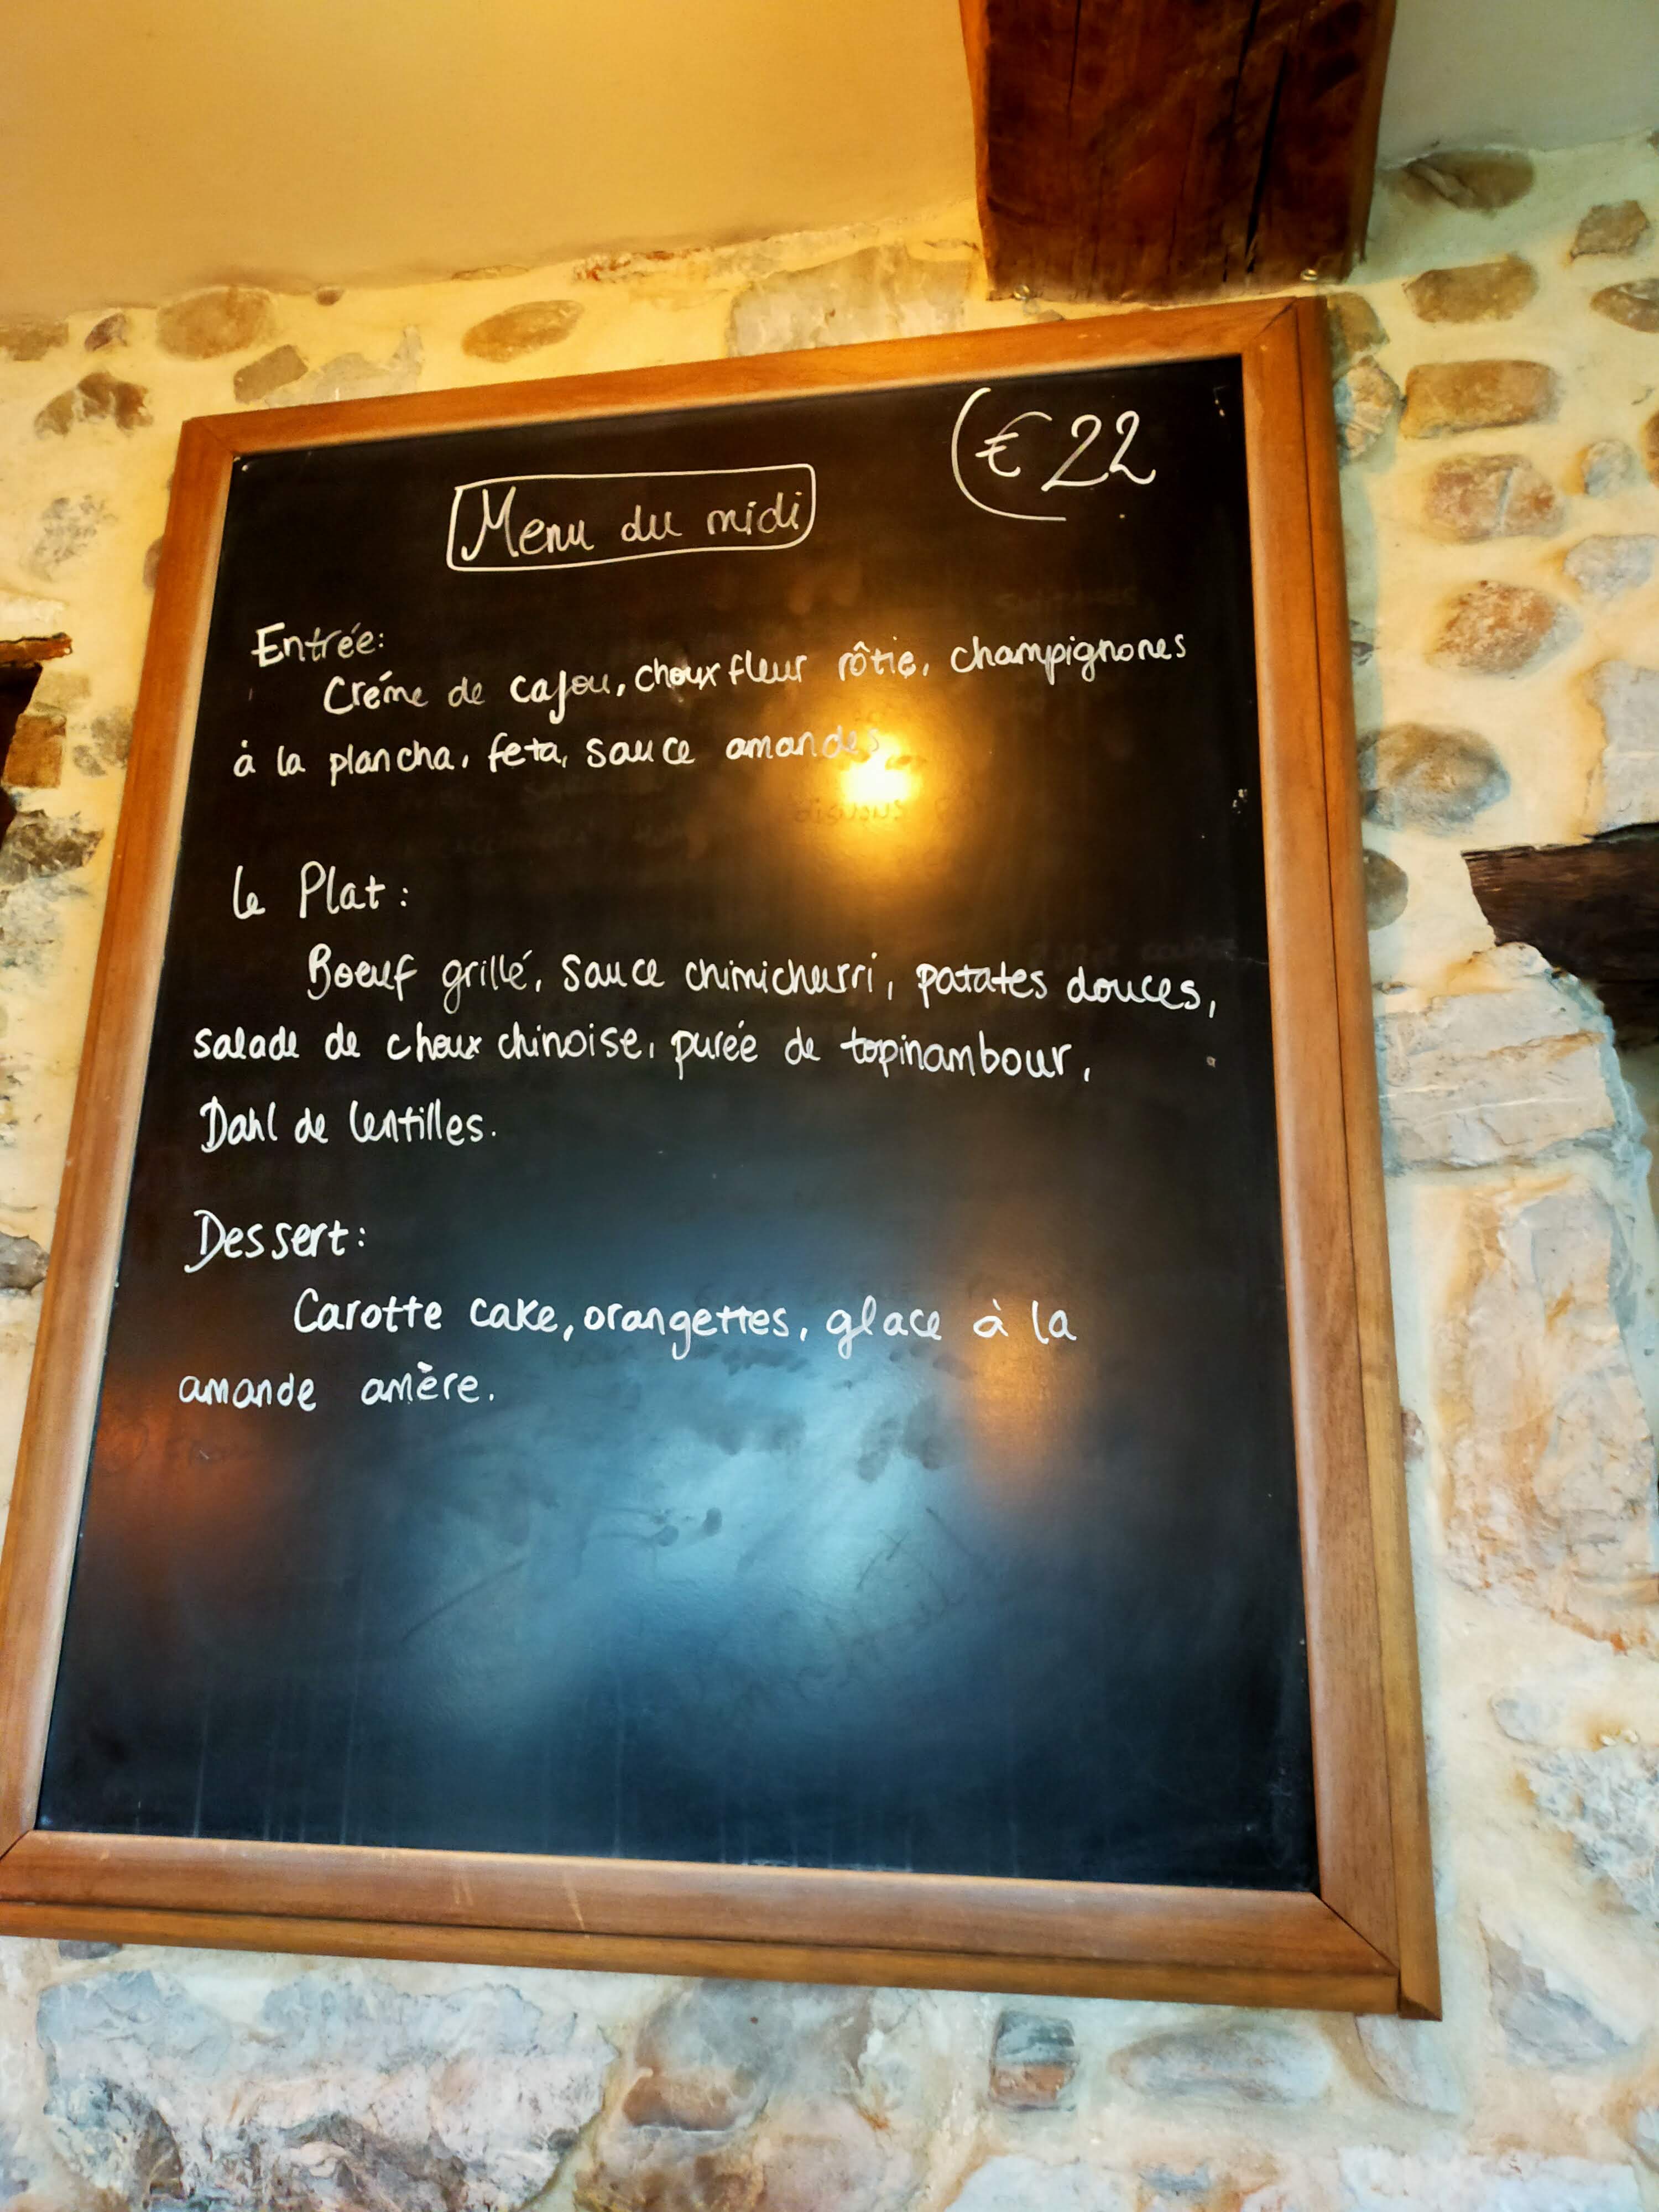 €22
Menu du midi
Entrée:
Créme de cajou, choux fleur rôtie, champignones
à la plancha, feta, sauce amandes
Le Plat:
Boeuf grillé, sauce chimichurri, patates douces,
salade de choux chinoise, purée de topinambour,
Dahl de lentilles.
Dessert:
Carotte cake, orangettes, glace à la
amande amère.